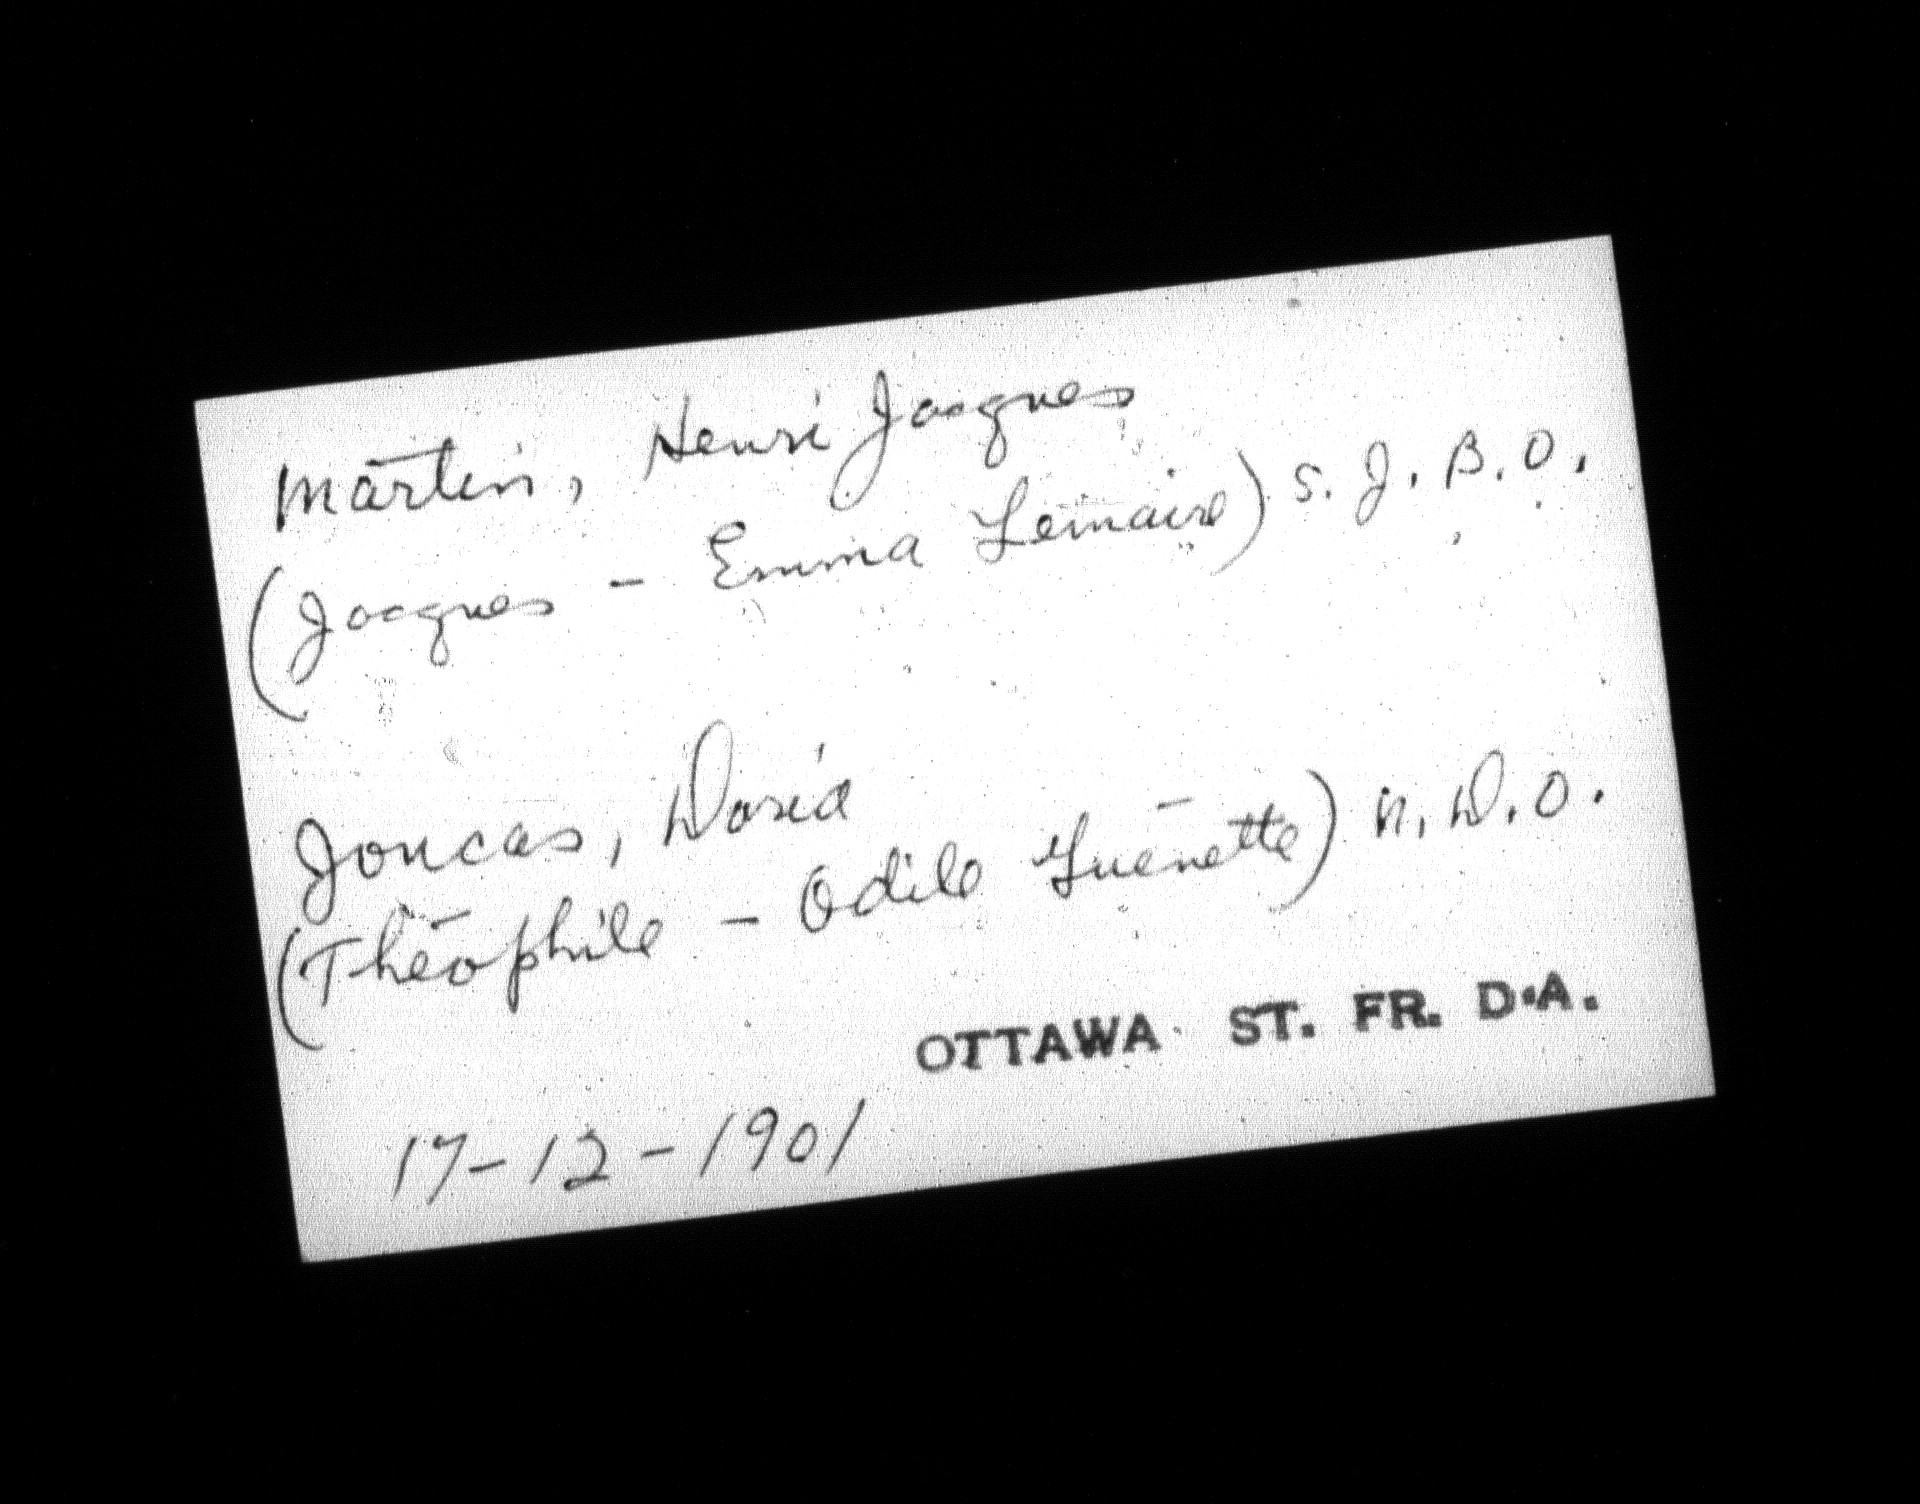 Martin, Henri Jacques
(Jacques - Emma Lemaire) S. J. B. O.
Joncas, Doria
(Théophile - Odile Guenette) N. D. O.
OTTAWA ST. FR. D.A.
17-12-1901